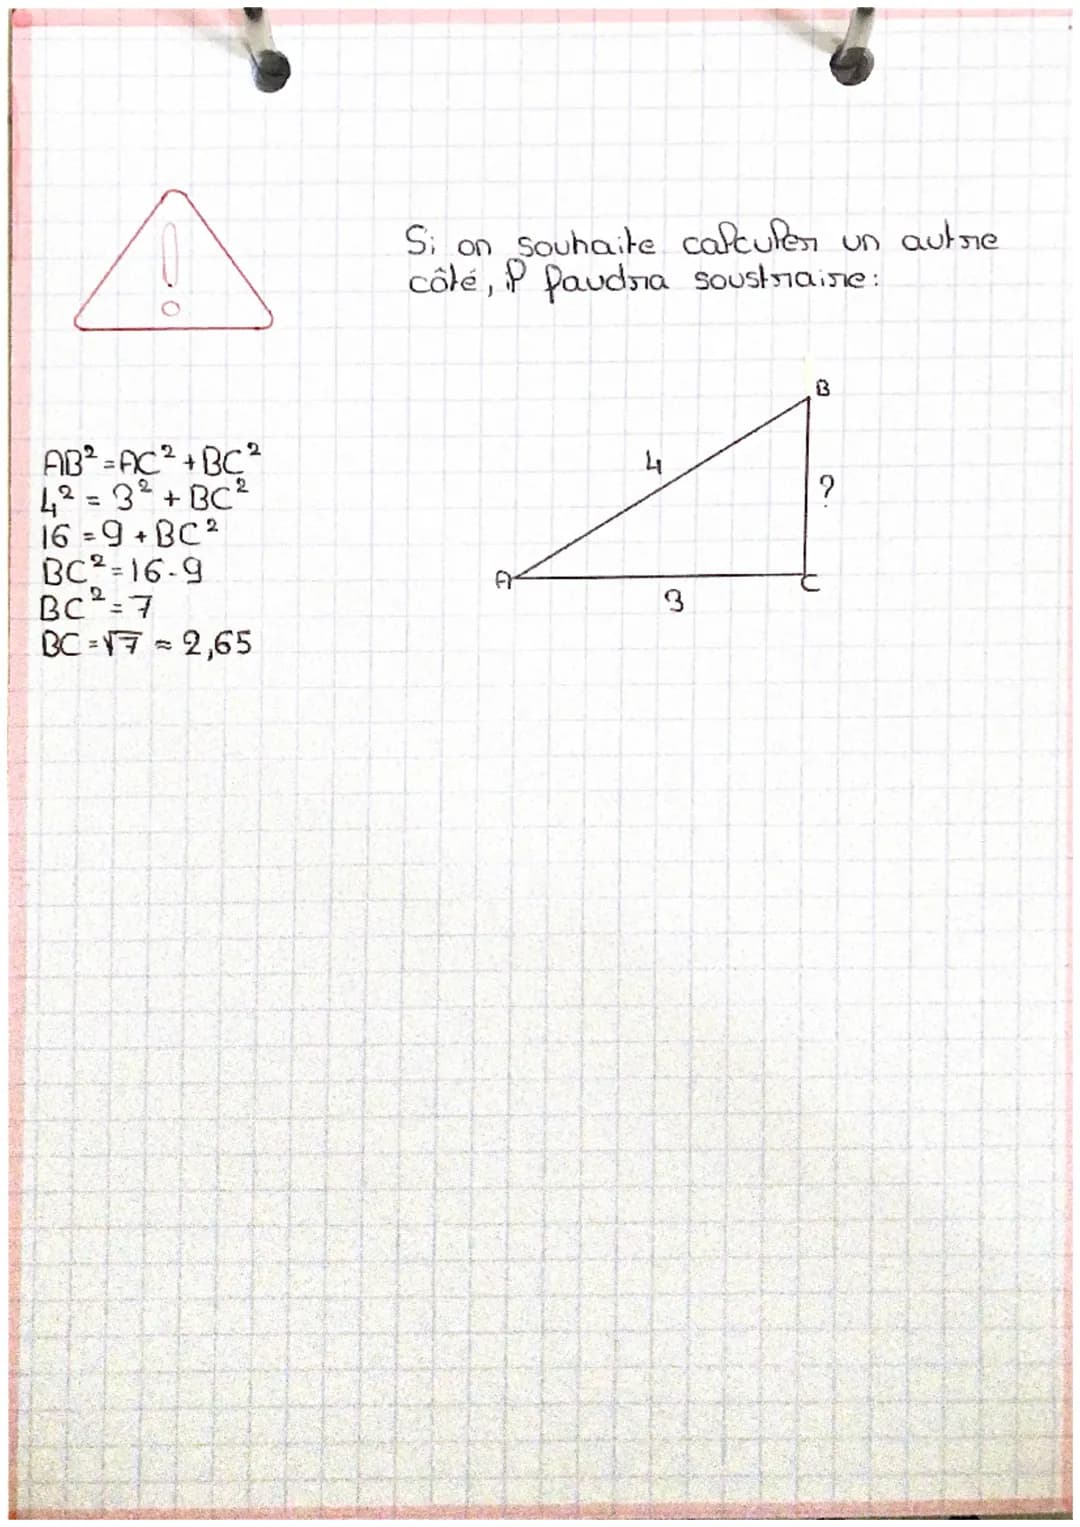 Si on souhaite calculer un autre
côté, il faudra soustraire :
B
4
?
A
C
3
AB² = AC² + BC²
4² = 3² + BC²
16 = 9 + BC²
BC² = 16 - 9
BC² = 7
BC = √7 ≈ 2,65